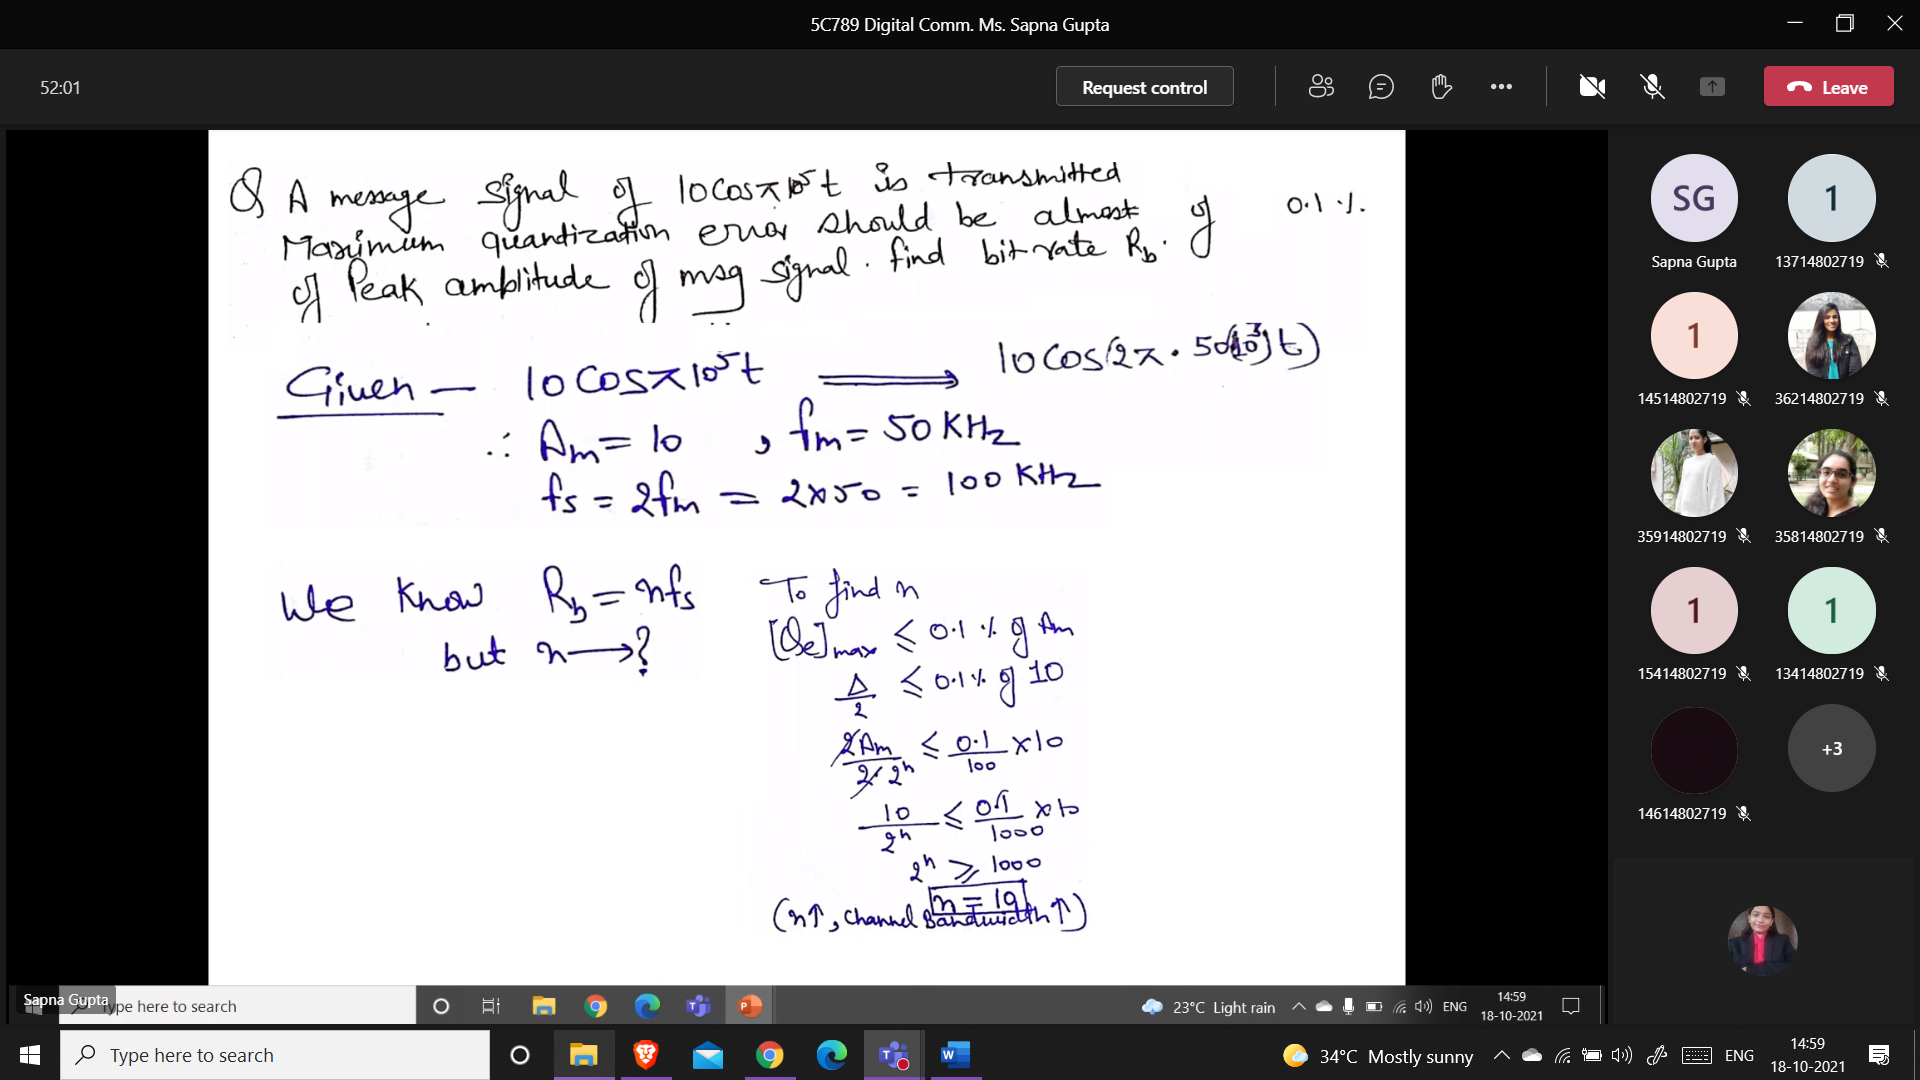 5C789 Digital Comm. Ms. Sapna Gupta
52:01
Request control
Leave
Q A message signal of 10Cosπ10⁵t is transmitted
Maximum quantization error should be almost of 0.1 %.
of Peak amplitude of msg signal. find bit rate Rb.
Given — 10Cosπ10⁵t ⟹ 10Cos(2π·50(10³)t)
∴ Am = 10 , fm = 50 KHz
fs = 2fm = 2×50 = 100 KHz
We know Rb = nfs
but n → ?
To find n
[Qe]max ≤ 0.1 % of Am
Δ/2 ≤ 0.1% of 10
2Am/2·2ⁿ ≤ 0.1/100 ×10
10/2ⁿ ≤ 0.1/1000 ×10
2ⁿ ≥ 1000
n = 10
(n↑, Channel Bandwidth↑)
SG
Sapna Gupta
1
13714802719
1
14514802719
36214802719
35914802719
35814802719
1
15414802719
1
13414802719
14614802719
+3
Sapna Gupta
Type here to search
23°C Light rain
ENG
14:59
18-10-2021
Type here to search
34°C Mostly sunny
ENG
14:59
18-10-2021